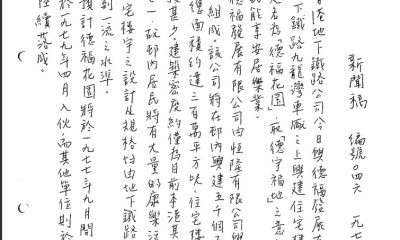 新聞稿 編號〇四六 一九七
香港地下鐵路公司今日與德福發展有
下鐵路九龍灣車廠之上興建住宅樓
名為「德福花園」,取「德宇福地」之意
能享安居樂業。
德福發展有限公司由恆隆有限公司與
組成。該公司將在邨內興建五千個
總面積約達三百萬平方呎。住宅樓
甚少,建築密度約僅為目前本港其
一般邨內居民將有大量的康樂活
宅樓宇之設計及規格均由地下鐵路
到一流之水準。
預計德福花園將於一九七七年九月間
於一九七九年四月入伙,而其他單位則於
陸續落成。